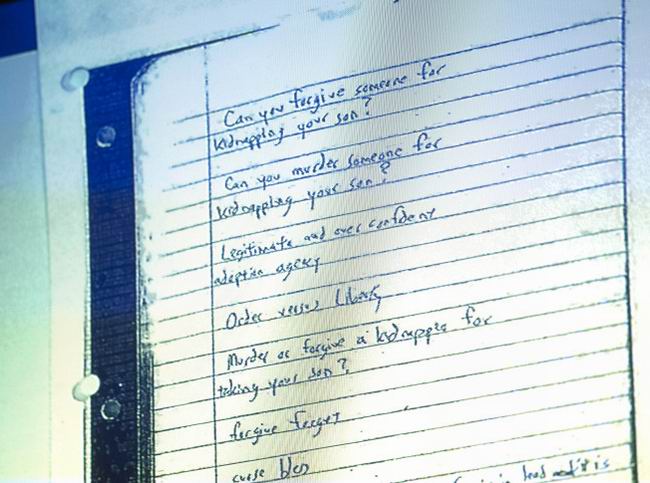 Can you forgive someone for
kidnapping your son?
Can you murder someone for
kidnapping your son?
Legitimate and over confident
adoption agency
Order versus Liberty
Murder or forgive a kidnapper for
taking your son?
forgive forget
curse bless
lead and it is